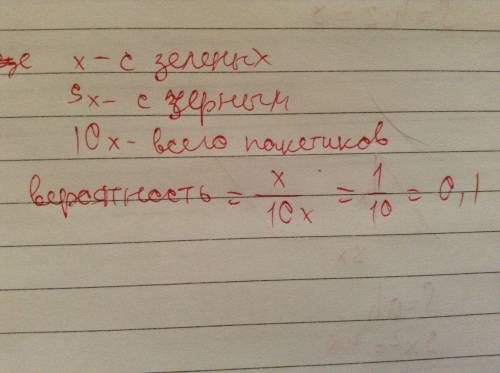 x - с зеленых
9x - с черным
10x - всего пакетиков
вероятность = x/10x = 1/10 = 0,1